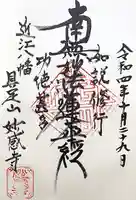 令和四年一月三十九日
如説修行
南無妙法蓮華経
功徳主
近江八幡
具足山 妙感寺